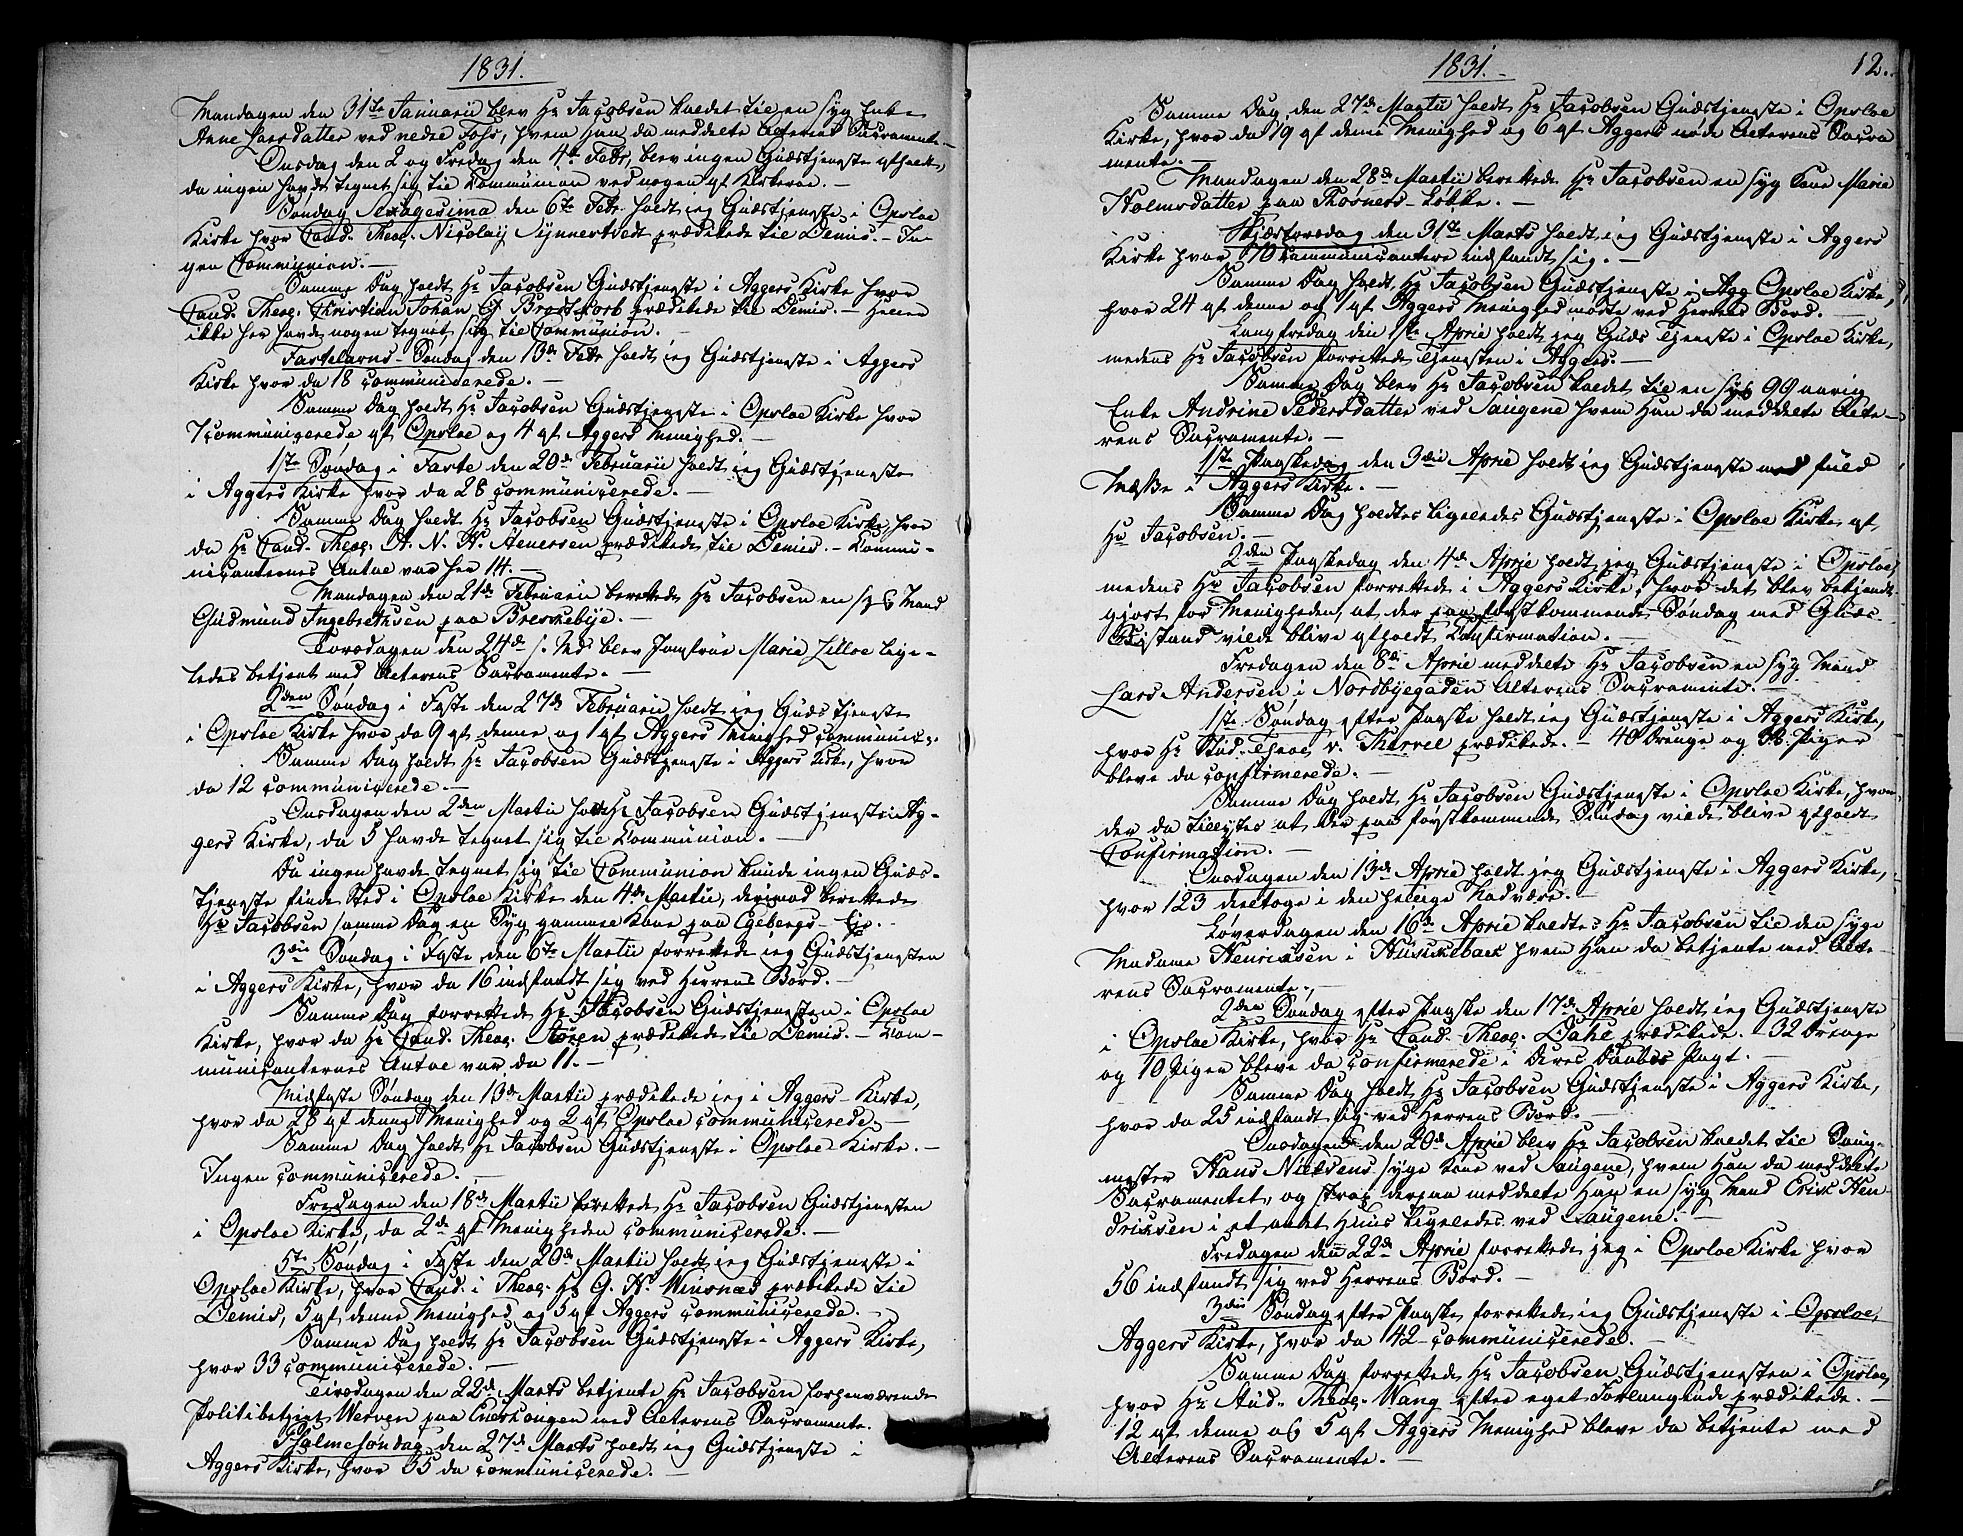 1831.
Mandagen den 31te Januarii blev Hr Jacobsen kaldet til en syg Enke
Anne Larsdatter ved nedre Fohs, hvem han da meddelte Alterets Sacramente.—
Onsdag den 2 og Fredag den 4de Febr. blev ingen Gudstjeneste afholdt,
da ingen havde tegnet sig til Communion ved nogen af Kirkerne.—
Søndag Sexagesima den 6te Febr. holdt jeg Gudstjeneste i Opsloe
Kirke hvor Cand. Theol. Nicolaij Synnestvedt prædikede til Demis.— In-
gen Communion.—
Samme Dag holdt Hr Jacobsen Gudstjeneste i Aggers Kirke hvor
Cand. Theol. Christian Johan G. Brodtkorb prædikede til Demis.— Heller
ikke her havde nogen tegnet sig til Communion.
Fastelavns-Søndag den 13de Febr. holdt jeg Gudstjeneste i Aggers
Kirke hvor da 18 communicerede.—
Samme Dag holdt Hr Jacobsen Gudstjeneste i Opsloe Kirke hvor
7 communicerede af Opsloe og 4 af Aggers Menighed.—
1ste Søndag i Faste den 20de Februarii holdt jeg Gudstjeneste
i Aggers Kirke hvor da 28 communicerede.—
Samme Dag holdt Hr Jacobsen Gudstjeneste i Opsloe Kirke, hvor
da Hr Cand. Theol. A. N. H. prædikede til Demis.— Commu-
nicanternes Antal var her 14.—
Mandagen den 21de Februarii berettede Hr Jacobsen en syg Mand
Gudmund Ingebrethsen paa Bredskebye.—
Torsdagen den 24de s. Md. blev Jomfrue Marie Lilloe lige-
ledes betjent med Alterens Sacramente.—
2den Søndag i Faste den 27de Februarii holdt jeg Gudstjeneste
i Opsloe Kirke hvor da 9 af denne og 1 af Aggers Menighed communic:
Samme Dag holdt Hr Jacobsen Gudstjeneste i Aggers Kirke, hvor
da 12 communicerede.—
Onsdagen den 2den Martii holdt Hr Jacobsen Gudstjeneste i Ag-
gers Kirke, da 5 havde tegnet sig til Communion.—
Da ingen havde tegnet sig til Communion kunde ingen Guds-
tjeneste finde Sted i Opsloe Kirke den 4de Martii, derimod berettede
Hr Jacobsen samme Dag en Syg gammel Kone paa Egebergs-Eje.—
3die Søndag i Faste den 6te Martii forrettede jeg Gudstjenesten
i Aggers Kirke, hvor da 16 indfandt sig ved Herrens Bord.—
Samme Dag forrettede Hr Jacobsen Gudstjenesten i Opsloe
Kirke, hvor da Hr Cand. Theol. Støren prædikede til Demis.— Com-
municanternes Antal var da 11.—
Midfaste Søndag den 13de Martii prædikede jeg i Aggers-Kirke,
hvor da 28 af denne Menighed og 2 af Opsloe communicerede.—
Samme Dag holdt Hr Jacobsen Gudstjeneste i Opsloe-Kirke.—
Ingen communicerede.—
Fredagen den 18de Martii forrettede Hr Jacobsen Gudstjenesten
i Opsloe Kirke, da 2de af Menigheden communicerede.—
5te Søndag i Faste den 20de Martii holdt jeg Gudstjeneste i
Opsloe Kirke, hvor Cand. i Theol. Hr G. H. Winsnæs prædikede til
Demis, 5 af denne Menighed og 3 af Aggers communicerede.—
Samme Dag holdt Hr Jacobsen Gudstjeneste i Aggers Kirke,
hvor 33 communicerede.—
Tirsdagen den 22de Marts betjente Hr Jacobsen forhenværende
Politibetjent Werven paa med Alterens Sacramente.
Palmesøndag den 27de Marts holdt jeg Gudstjeneste i
Aggers Kirke, hvor 35 da communicerede.—
1831.
12.
Samme Dag den 27de Martii holdt Hr Jacobsen Gudstjeneste i Opsloe
Kirke, hvor da 19 af denne Menighed og 6 af Aggers nøde Alterens Sacra
mente.—
Mandagen den 28de Martii berettede Hr Jacobsen en syg Kone Marie
Holmsdatter paa Thosners-Løkke.—
Skjærtorsdag den 31te Marts holdt jeg Gudstjeneste i Aggers
Kirke hvor 70 Communicantere indfandt sig.—
Samme Dag holdt Hr Jacobsen Gudstjeneste i Agg Opsloe Kirke,
hvor 24 af denne og 1 af Aggers Menighed mødte ved Herrens Bord.—
Langfredag den 1ste April holdt jeg Guds Tjeneste i Opsloe Kirke,
medens Hr Jacobsen forrettede Tjenesten i Aggers.—
Samme Dag blev Hr Jacobsen kaldet til en syg 99 aarig
Enke Andrine Pedersdatter ved Saugene hvem han da meddelte Alte-
rens Sacramente.—
1ste Paaskedag den 3die April holdt jeg Gudstjeneste med fuld
Messe i Aggers Kirke.—
Samme Dag holdtes ligeledes Gudstjeneste i Opsloe Kirke af
Hr Jacobsen.—
2den Paaskedag den 4de April holdt jeg Gudstjeneste i Opsloe,
medens Hr Jacobsen forrettede i Aggers Kirke, hvor det blev bekjendt-
gjort for Menigheden, at der paa førstkommende Søndag med Guds
Bistand vilde blive afholdt Confirmation.—
Fredagen den 8de April meddelte Hr Jacobsen en syg Mand
Lars Andersen i Nordbyegaden Alterens Sacramente.—
1ste Søndag efter Paaske holdt jeg Gudstjeneste i Aggers Kirke,
hvor Hr Stud. Theol. v. Therrel prædikede.— 40 Drenge og 38 Piger
bleve da confirmerede.—
Samme Dag holdt Hr Jacobsen Gudstjeneste i Opsloe Kirke, hvor
der da tillystes at der paa førstkommende Søndag vilde blive afholdt
Confirmation.—
Onsdagen den 13de April holdt jeg Gudstjeneste i Aggers Kirke,
hvor 123 deeltoge i den hellige Nadvere.—
Løverdagen den 16de April kaldtes Hr Jacobsen til den syge
Madame Henrichsen i Kuskelbæk hvem han da betjente med Alte-
rens Sacramente.—
2den Søndag efter Paaske den 17de April holdt jeg Gudstjeneste
i Opsloe Kirke, hvor Hr Cand. Theol. Dahl prædikede. 32 Drenge
og 19 Piger bleve da confirmerede i Deres Daabes Pagt.—
Samme Dag holdt Hr Jacobsen Gudstjeneste i Aggers Kirke,
hvor da 25 indfandt sig ved Herrens Bord.—
Onsdagen den 20de April blev Hr Jacobsen kaldet til Saug-
mester Hans Nielsens syge Kone ved Saugene, hvem han da meddelte
Sacramentet, og strax derpaa meddelte han en syg Mand Erick Hen-
drichsen i et andet Huus ligeledes ved Saugene.—
Fredagen den 22de April forrettede jeg i Opsloe Kirke hvor
56 indfandt sig ved Herrens Bord.—
3die Søndag efter Paaske forrettede jeg Gudstjeneste i Opsloe,
Aggers Kirke, hvor da 42 communicerede.—
Samme Dag forrettede Hr Jacobsen Gudstjenesten i Opsloe,
hvor Hr Stud. Theol. Wang efter eget Forlangende prædikede.—
12 af denne og 5 af Aggers Menighed bleve da betjente med
Alterens Sacramente.—